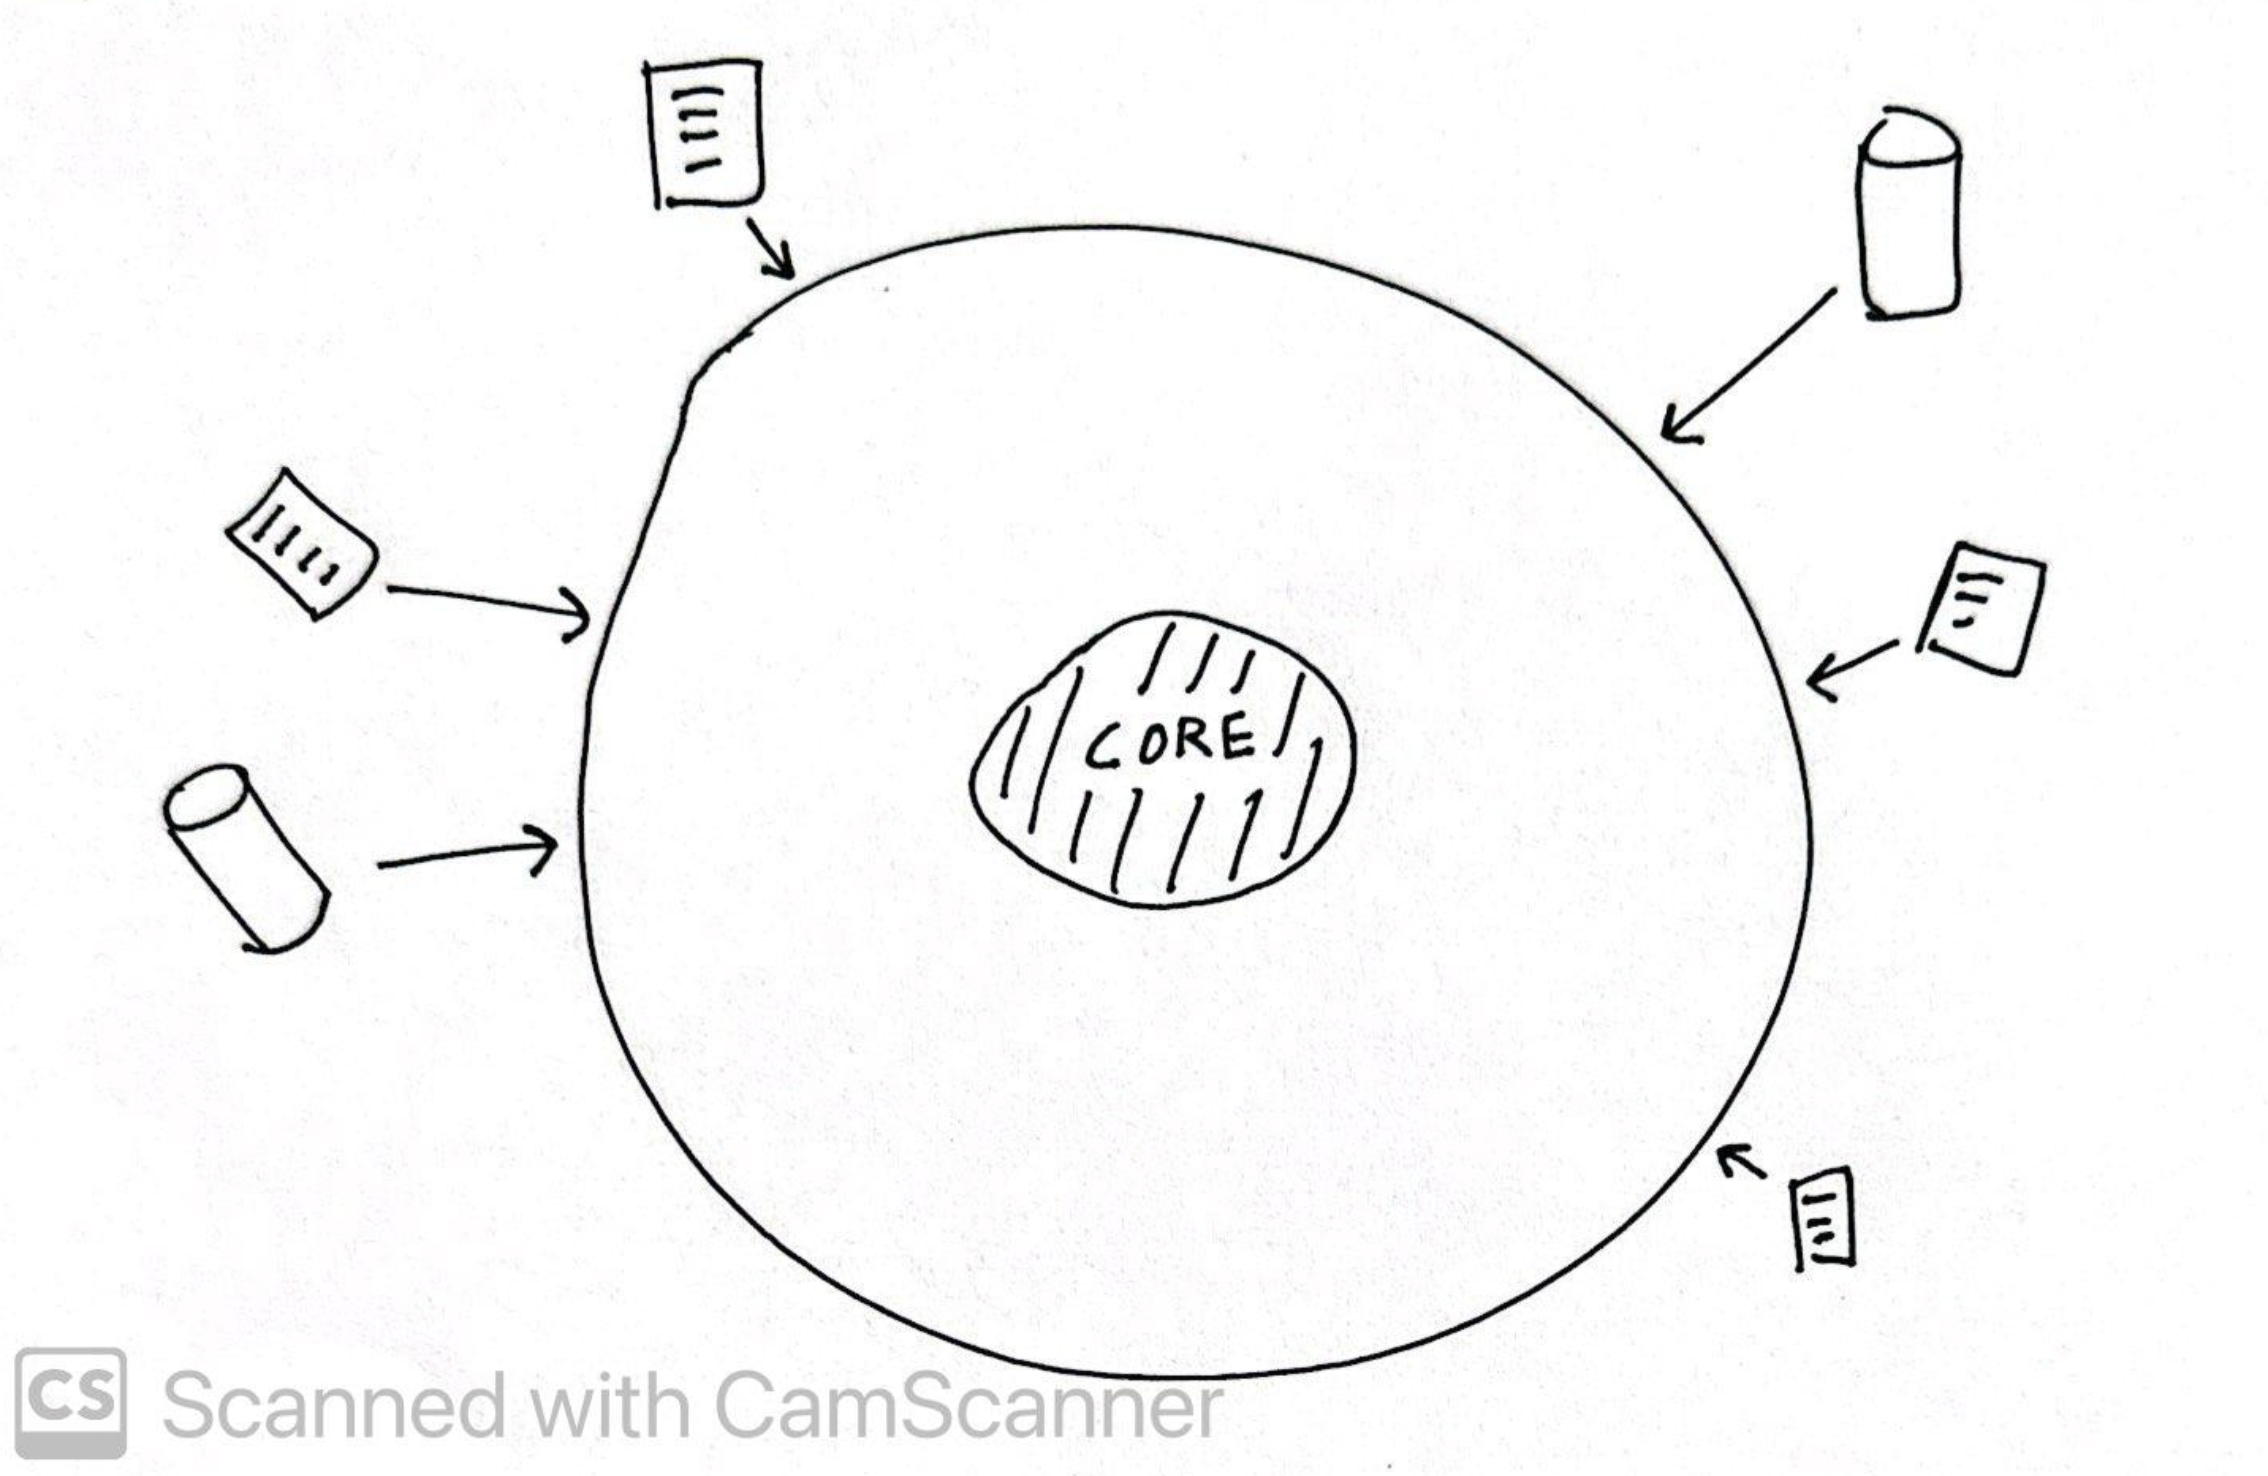 CORE
CS Scanned with CamScanner